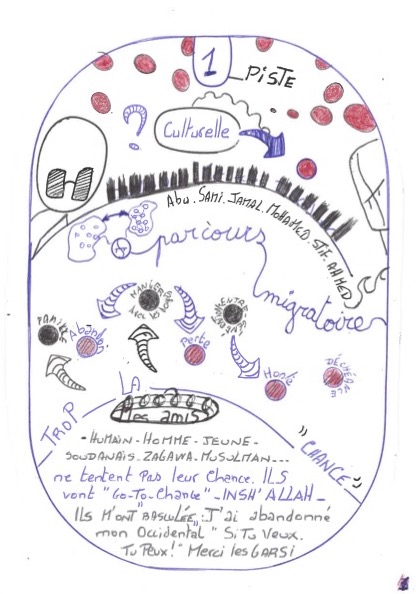 1
PISTE
?
Culturelle
H
Abu. Sami. Jamal. Mohamed. STIF. AHMED
parcours
migratoire
FAMILLE
Abandon
Perte
Honte
DÉCHÉANCE
TROP LA "CHANCE"
Mes amis
- HUMAIN - HOMME - JEUNE -
SOUDANAIS - ZAGAWA - MUSULMAN...
ne tentent pas leur chance. ILS
vont "GO-TO-Change" - INSH'ALLAH -
ILS M'ONT "BASCULÉE": J'ai abandonné
mon Occidental "Si Tu Veux.
Tu Peux!" Merci les GARSI